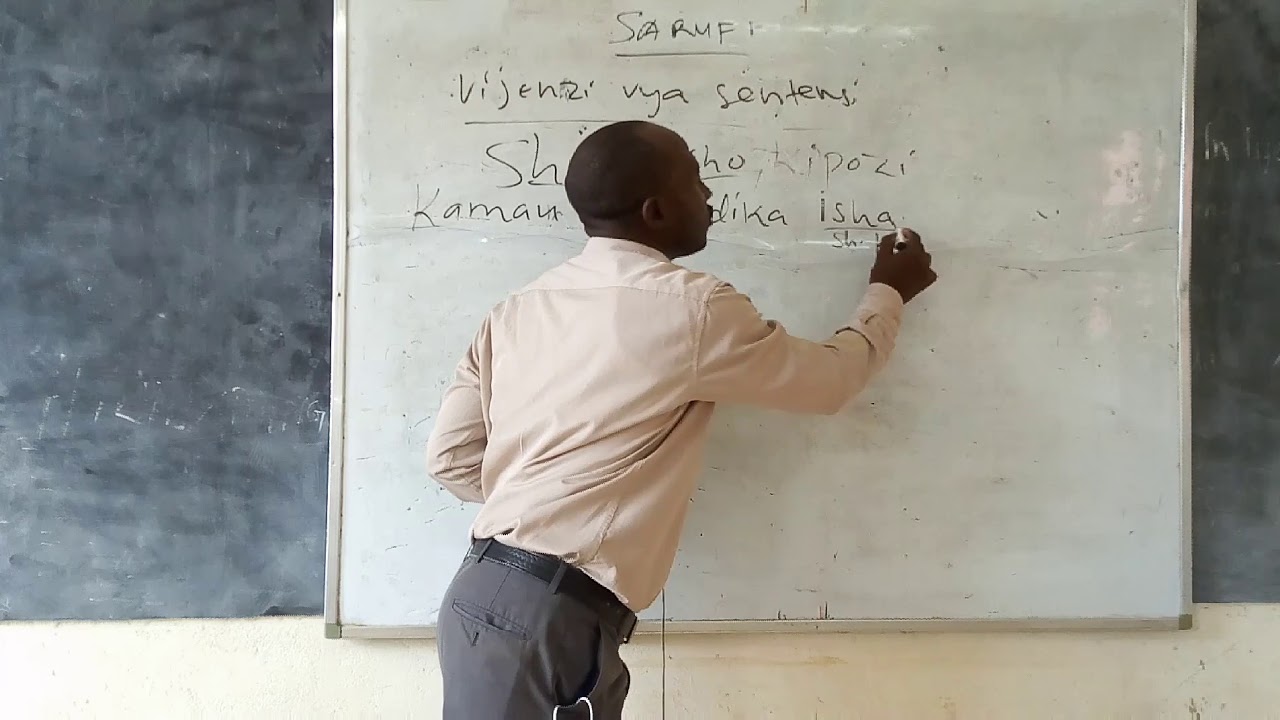 SARUFI
Vijenzi vya sentensi
Sh ho, kipozi
Kamau dika Isha
Sh.